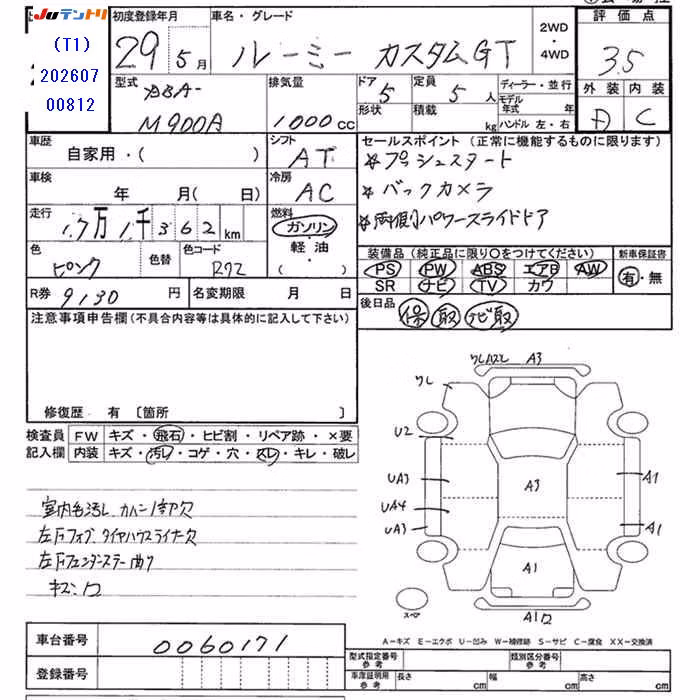 Juテントリ
(T1)
202607
00812
初度登録年月
29 5月
車名・グレード
ルーミー カスタムGT
2WD
・
4WD
評価点
3.5
外装 内装
C
型式
DBA-
M900A
排気量
1000cc
ドア 5
形状
定員 5人
積載 kg
ディーラー・並行
モデル年式 年
ハンドル 左・右
車歴
自家用・( )
シフト
AT
車検
年 月( 日)
冷房
AC
走行
1.7万1千362km
燃料
ガソリン
軽油・
( )
色
ピンク
色替
色コード
R72
R券 9130円
名変期限 月 日
セールスポイント (正常に機能するものに限ります)
☆プッシュスタート
☆バックカメラ
☆両側パワースライドドア
装備品 (純正品に限り○をつけてください)
新車保証書
PS PW ABS エアB AW
SR ナビ TV カワ
有・無
後日品
保 取 ナビ取
注意事項申告欄 (不具合内容等は具体的に記入して下さい)
修復歴 有 〔箇所 〕
検査員
記入欄
FW キズ・飛石・ヒビ割・リペア跡・×要
内装 キズ・汚レ・コゲ・穴・スレ・キレ・破レ
室内毛汚レ カバー1部欠
左Fフォグ タイヤハウスライナー欠
左Fフェンダーステー曲り
キズ・凹
ワレ A3
ワレ
U2
UA3
UA4
UA3
A3
A1
A1
A1
A1凹
スペア
A-キズ E-エクボ U-凹み W-補修跡 S-サビ C-腐食 XX-交換済
車台番号 0060171
登録番号
型式指定番号
参考
類別区分番号
参考
車庫証明用
参考
長さ cm
幅 cm
高さ cm